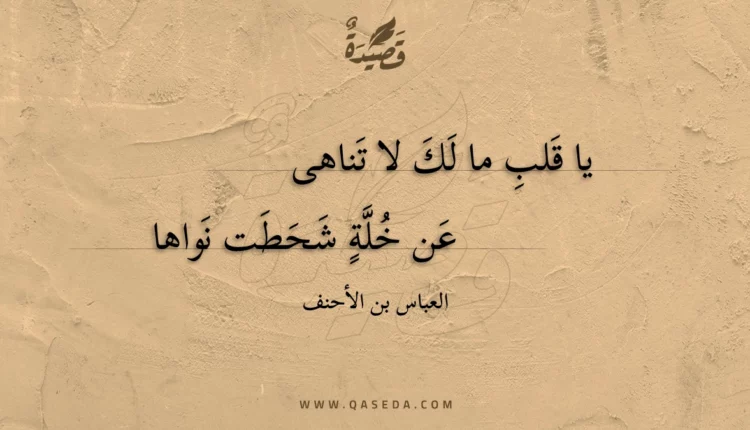 قَصِيْدَةٌ
يا قَلبِ ما لَكَ لا تَناهى
عَن خُلَّةٍ شَحَطَت نَواها
العباس بن الأحنف
WWW.QASEDA.COM